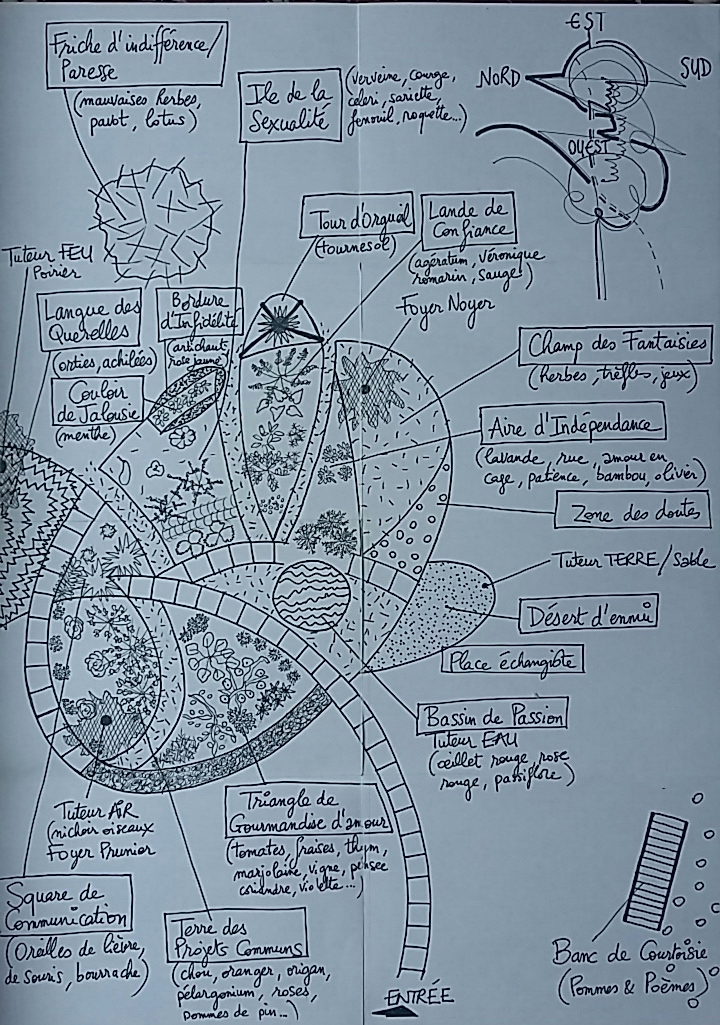 Friche d'indifférence/
Paresse
(mauvaises herbes,
pavot, lotus)
Ile de la
Sexualité
(verveine, courge,
céleri, sariette,
fenouil, roquette...)
EST
NORD
SUD
OUEST
Tour d'Orgueil
(tournesol)
Lande de
Confiance
(agératum, véronique
romarin, sauge)
Foyer Noyer
Tuteur FEU
Poirier
Langue des
Querelles
(orties, achilées)
Bordure
d'Infidélité
(artichaut,
rose jaune)
Couloir
de Jalousie
(menthe)
Champ des Fantaisies
(herbes, trèfles, jeux)
Aire d'Indépendance
(lavande, rue, amour en
cage, patience, bambou, olivier)
Zone des doutes
Tuteur TERRE/Sable
Désert d'ennui
Place échangiste
Bassin de Passion
Tuteur EAU
(œillet rouge, rose
rouge, passiflore)
Tuteur AIR
(nichoir oiseaux
Foyer Prunier
Triangle de
Gourmandise d'amour
(tomates, fraises, thym,
marjolaine, vigne, pensée
coriandre, violette...)
Square de
Communication
(Oreilles de lièvre,
de souris, bourrache)
Terre des
Projets Communs
(chou, oranger, origan,
pélargonium, roses,
pommes de pin...)
ENTRÉE
Banc de Courtoisie
(Pommes & Poèmes)